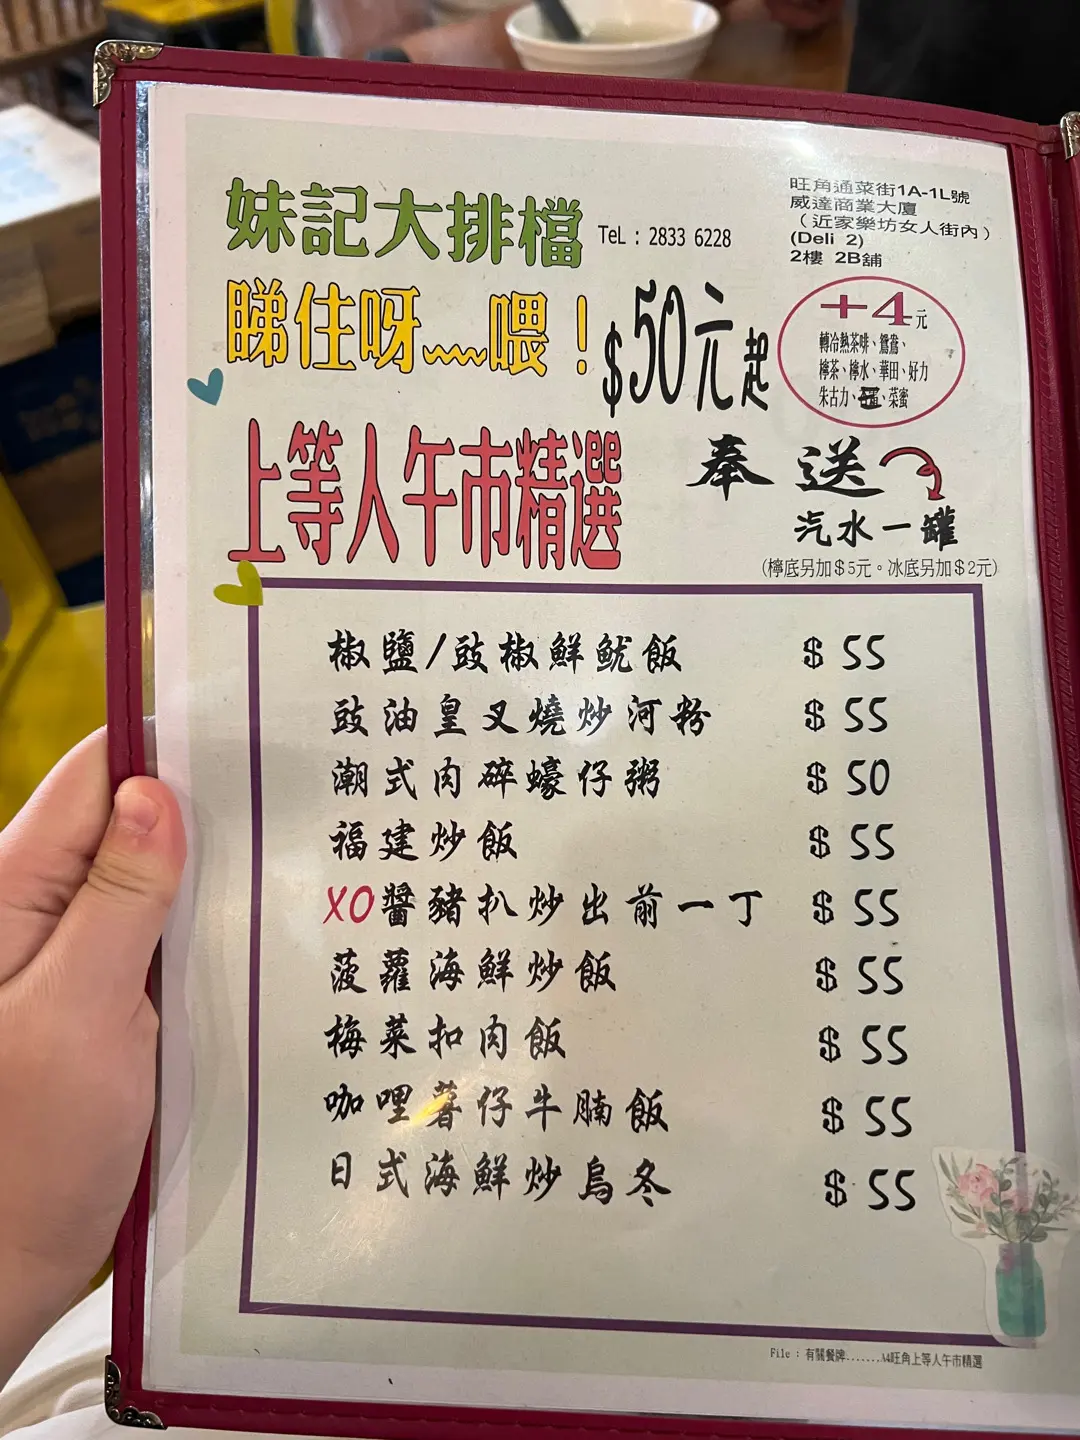 妹記大排檔 TeL : 2833 6228
旺角通菜街1A-1L號
威達商業大廈
(近家樂坊女人街內)
(Deli 2)
2樓 2B舖
睇住呀﹏﹏喂！
$50元起
+4元
轉冷熱茶啡、鴛鴦、
檸茶、檸水、華田、好力
朱古力、、菜蜜
上等人午市精選
奉送
汽水一罐
(檸底另加$5元。冰底另加$2元)
椒鹽/豉椒鮮魷飯 $ 55
豉油皇叉燒炒河粉 $ 55
潮式肉碎蠔仔粥 $ 50
福建炒飯 $ 55
XO醬豬扒炒出前一丁 $ 55
菠蘿海鮮炒飯 $ 55
梅菜扣肉飯 $ 55
咖哩薯仔牛腩飯 $ 55
日式海鮮炒烏冬 $ 55
File : 有關餐牌.......A4旺角上等人午市精選